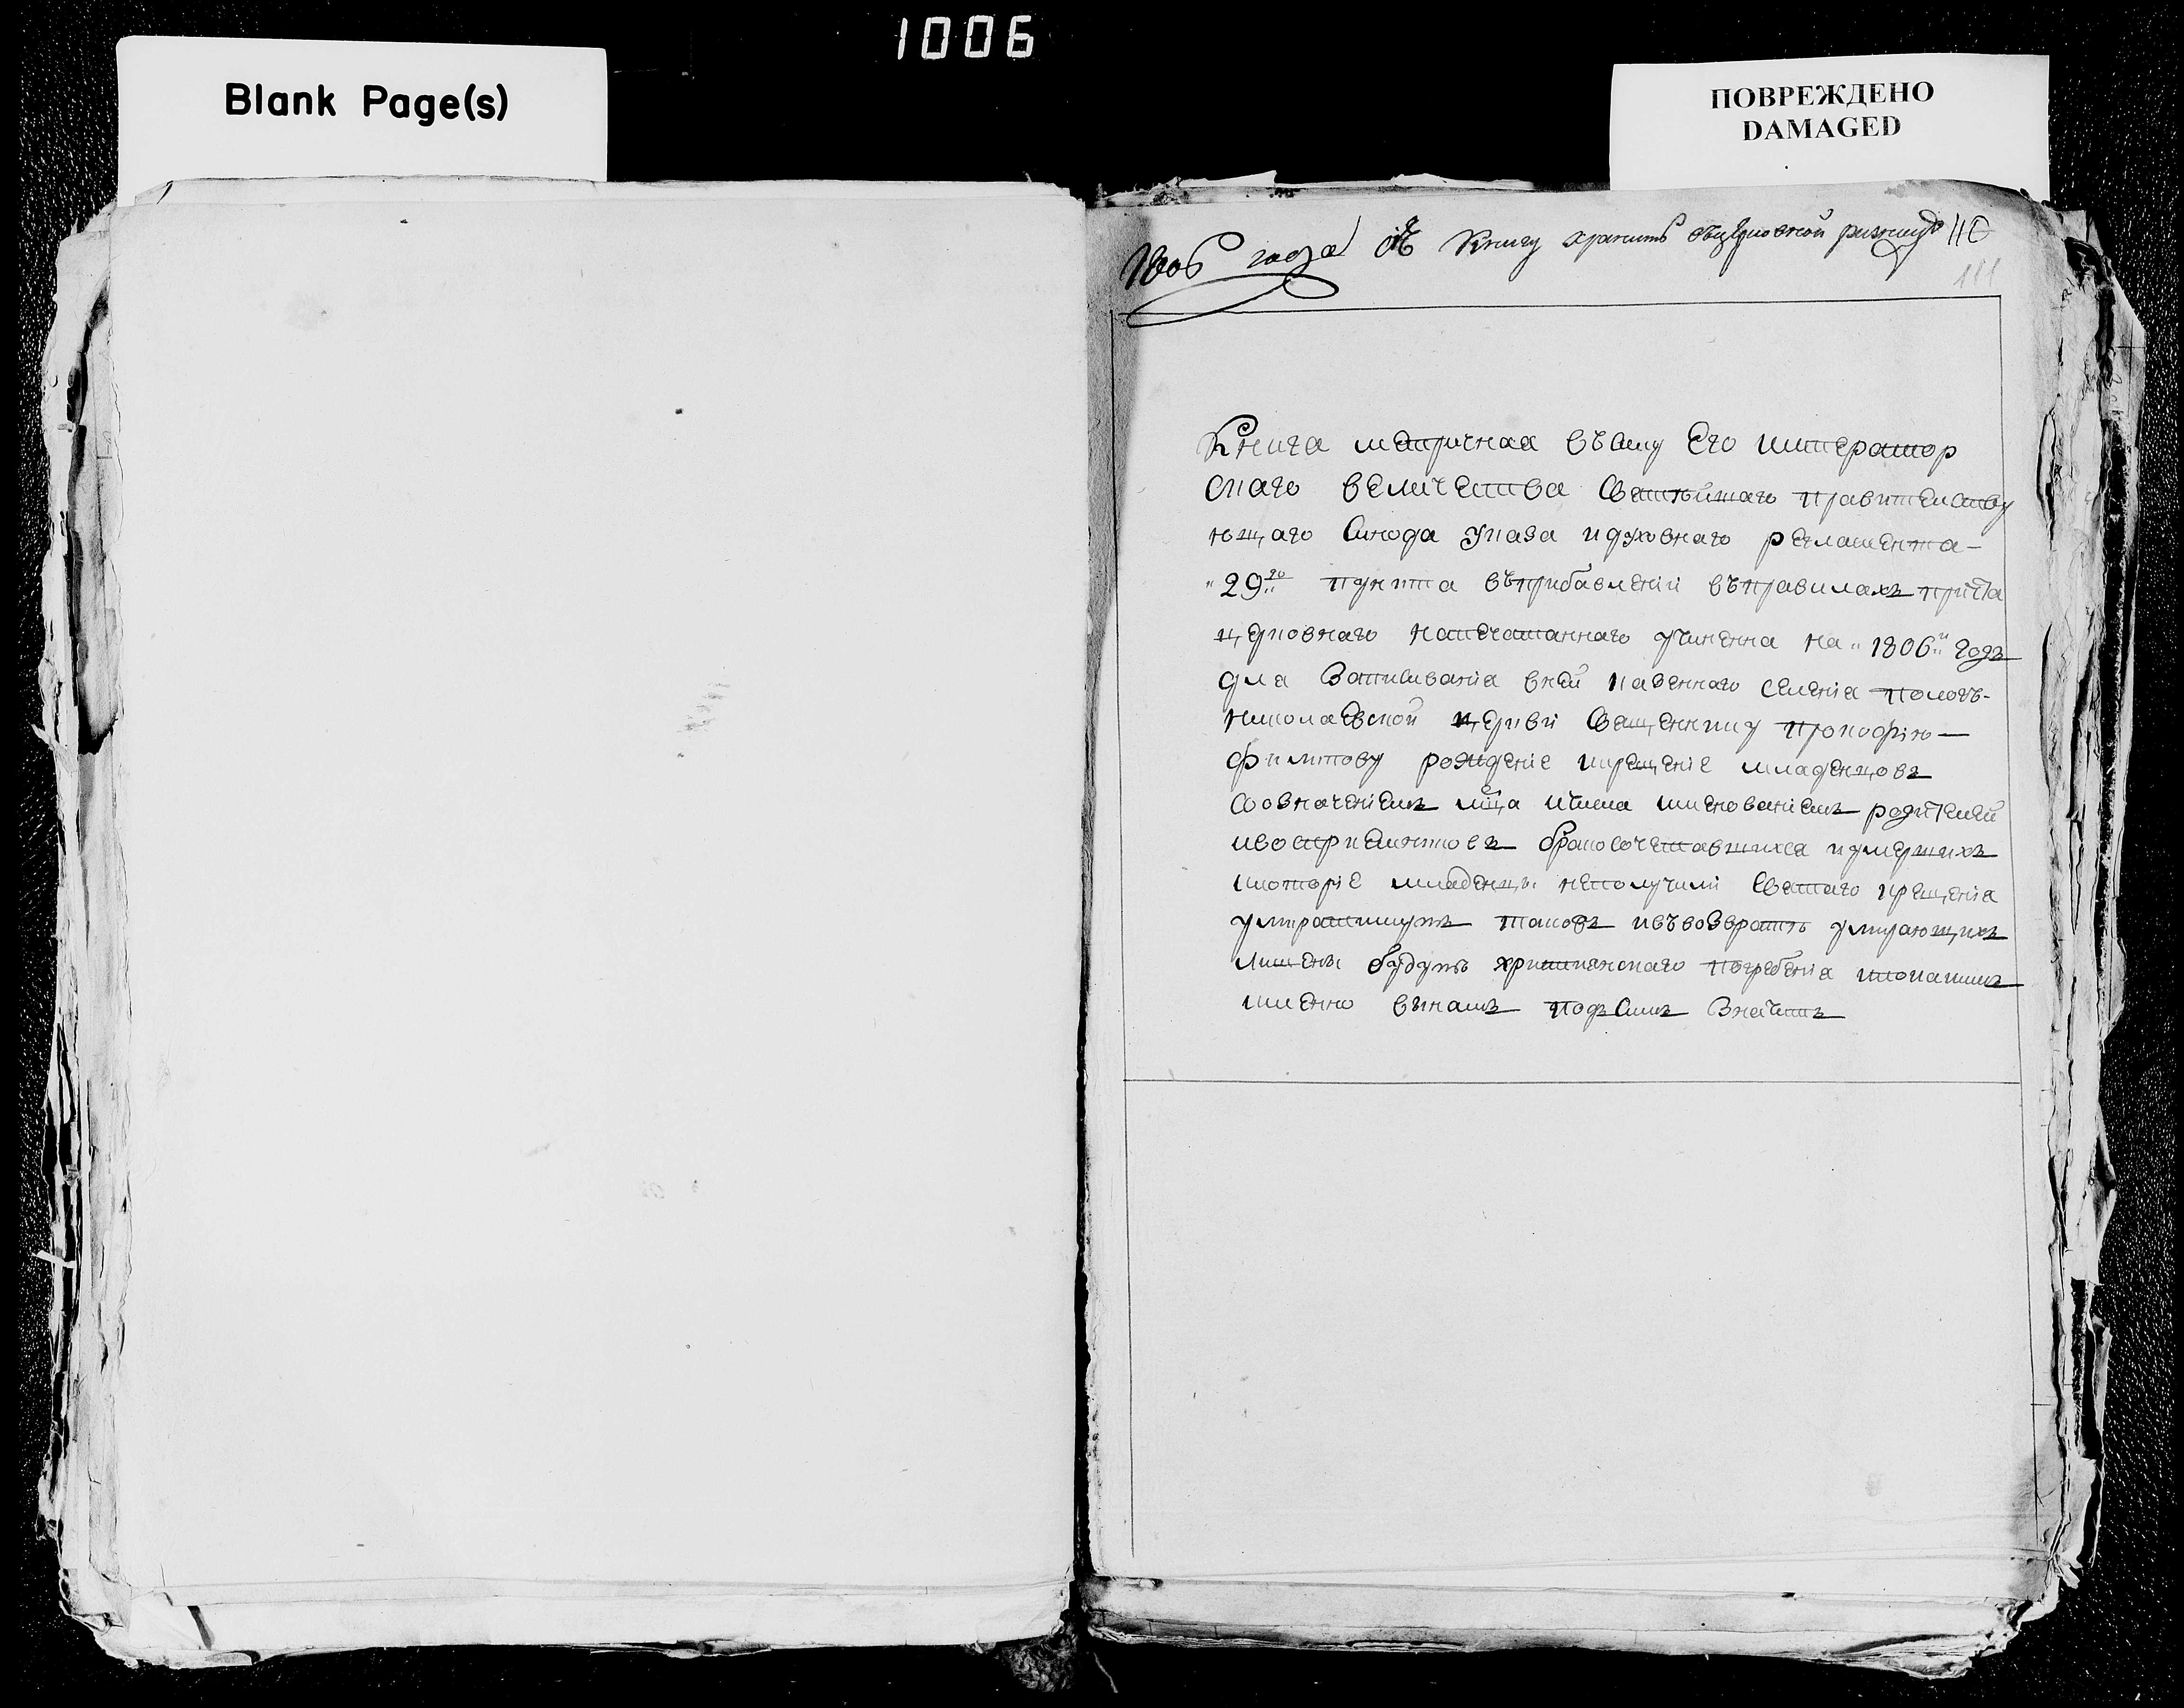 1006
Blank Page(s)
ПОВРЕЖДЕНО
DAMAGED
1806 года Книгу хранить въцерковной ризницѣ 110
111
Книга метричная всилу Его император
скаго величества Святѣйшаго правительству
ющаго Синода указа идуховнаго регламента-
"29го пункта въприбавленіи въправилахъ причта
церковнаго напечатаннаго учинѣнна на "1806" годъ
для Записыванія вней казеннаго селенія пологъ-
николаевской церкви Священнику прокофію—
филипову рожденіе икрещеніе младенцовъ
Сообначеніемъ мца ичисла именованіемъ родителей
ивоспріемниковъ бракосочетавшихся иумершихъ
икоторіе младенцы неполучили Святаго крещенія
умираютъ таковъ ивъвозвратъ умирающихъ
лишены будутъ христианскаго погребенія ипокакимъ
имѣнно винамъ подъсимъ Значитъ